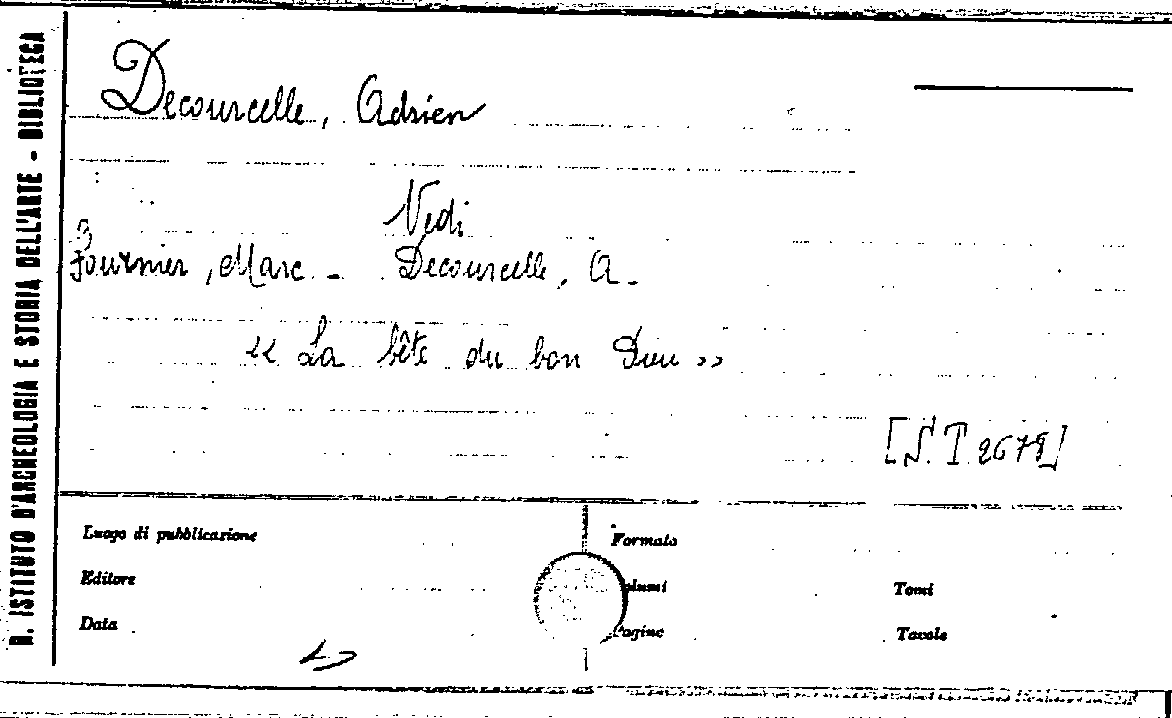 R. ISTITUTO D'ARCHEOLOGIA E STORIA DELL'ARTE - BIBLIOTECA
Decourcelle, Adrien
Vedi
Fournier, Marc - Decourcelle, A.
« La bête du bon Dieu »
[S. T. 2679]
Luogo di pubblicazione
Formato
Editore
Volumi
Tomi
Data
Pagine
Tavole